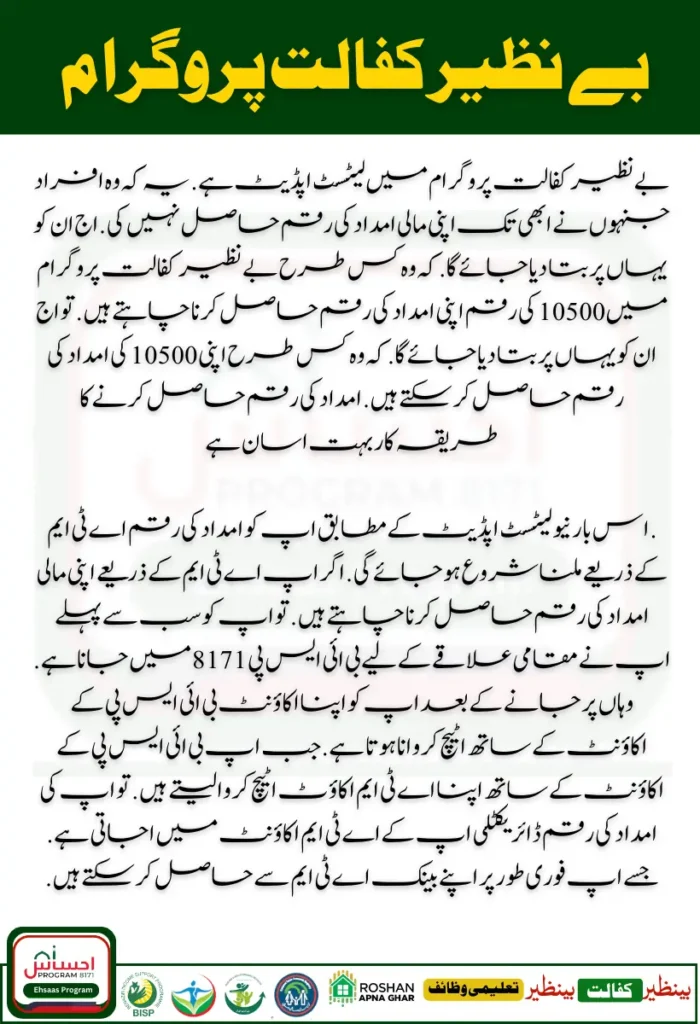 بے نظیر کفالت پروگرام
بے نظیر کفالت پروگرام میں لیٹسٹ اپڈیٹ ہے. یہ کہ وہ افراد
جنہوں نے ابھی تک اپنی مالی امداد کی رقم حاصل نہیں کی. اج ان کو
یہاں پر بتا دیا جائے گا. کہ وہ کس طرح بے نظیر کفالت پروگرام
میں 10500 کی رقم اپنی امداد کی رقم حاصل کرنا چاہتے ہیں. تو اج
ان کو یہاں پر بتا دیا جائے گا. کہ وہ کس طرح اپنی 10500 کی امداد کی
رقم حاصل کر سکتے ہیں. امداد کی رقم حاصل کرنے کا
طریقہ کار بہت اسان ہے
. اس بار نیو لیٹسٹ اپڈیٹ کے مطابق اپ کو امداد کی رقم اے ٹی ایم
کے ذریعے ملنا شروع ہو جائے گی. اگر اپ اے ٹی ایم کے ذریعے اپنی مالی
امداد کی رقم حاصل کرنا چاہتے ہیں. تو اپ کو سب سے پہلے
اپ نے مقامی علاقے کے لیے بی ائی ایس پی 8171 میں جانا ہے.
وہاں پر جانے کے بعد اپ کو اپنا اکاؤنٹ بی ائی ایس پی کے
اکاؤنٹ کے ساتھ اٹیچ کروانا ہوتا ہے. جب اپ بی ائی ایس پی کے
اکاؤنٹ کے ساتھ اپنا اے ٹی ایم اکاؤٹ اٹیچ کروا لیتے ہیں. تو اپ کی
امداد کی رقم ڈائریکٹلی اپ کے اے ٹی ایم اکاؤنٹ میں اجاتی ہے.
جسے اپ فوری طور پر اپنے بینک اے ٹی ایم سے حاصل کر سکتے ہیں.
احساس
PROGRAM 8171
Ehsaas Program
BISP
ROSHAN
APNA GHAR
بینظیر تعلیمی وظائف
بینظیر کفالت